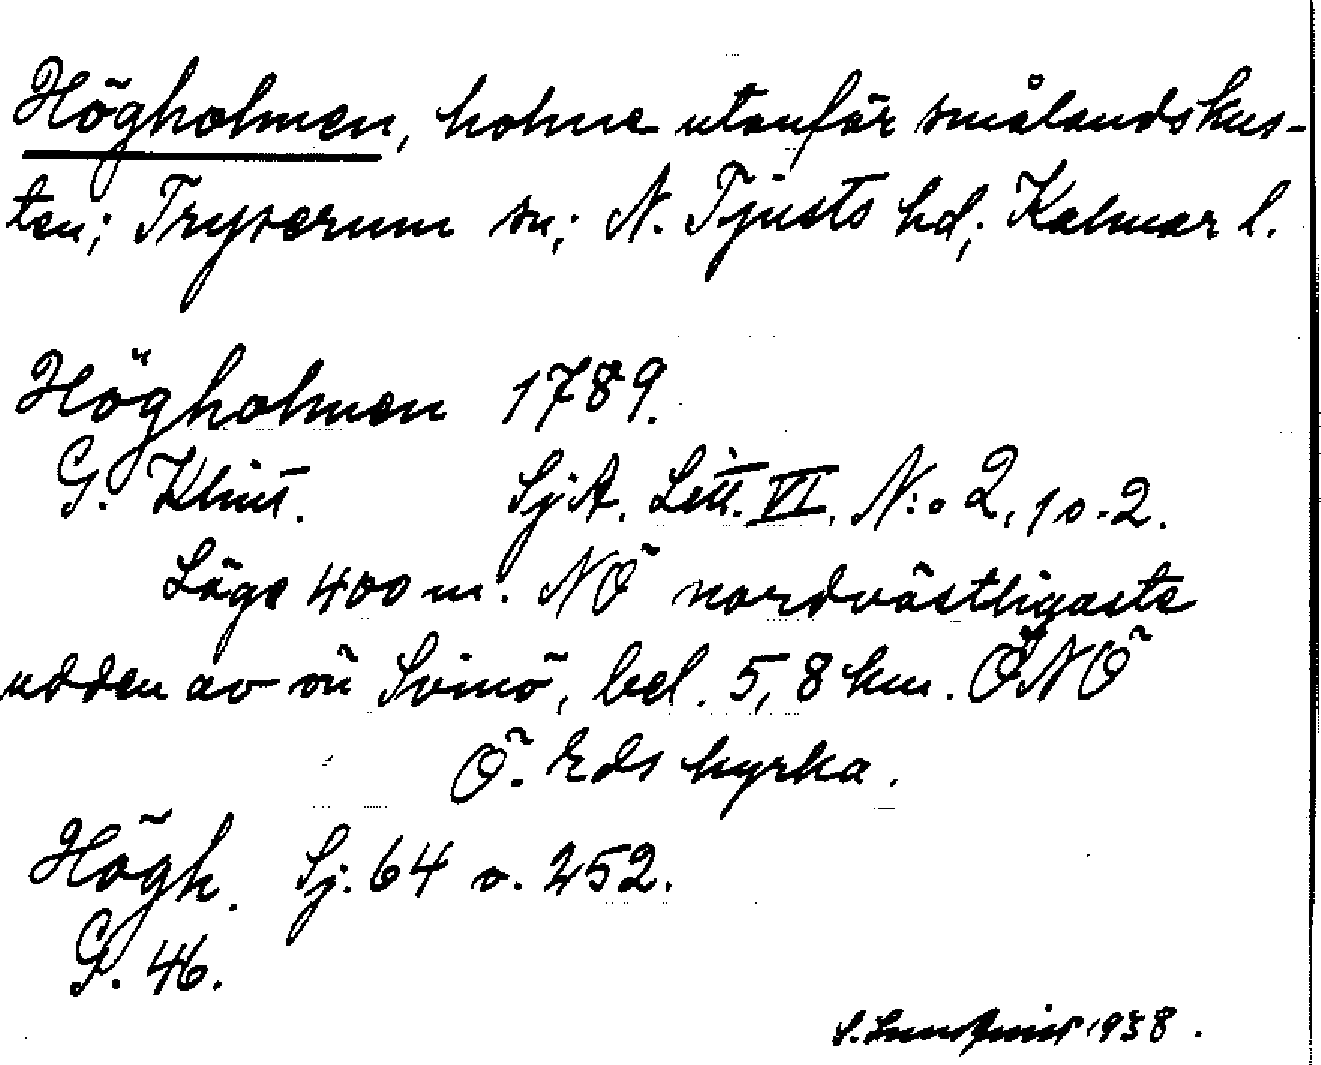 Högholmen, holme utanför smålandskus-
ten; Tryserum sn; N. Tjusts hd; Kalmar l.
Högholmen 1789.
G. Klint. SjA. Litt. VI, N:o 2, 1 o. 2.
Läge 400 m. NÖ nordvästligaste
udden av ön Svinö, bel. 5,8 km. ÖNÖ
Ö. Eds kyrka.
Högh. Sj. 64 o. 252.
G. 46.
1938.